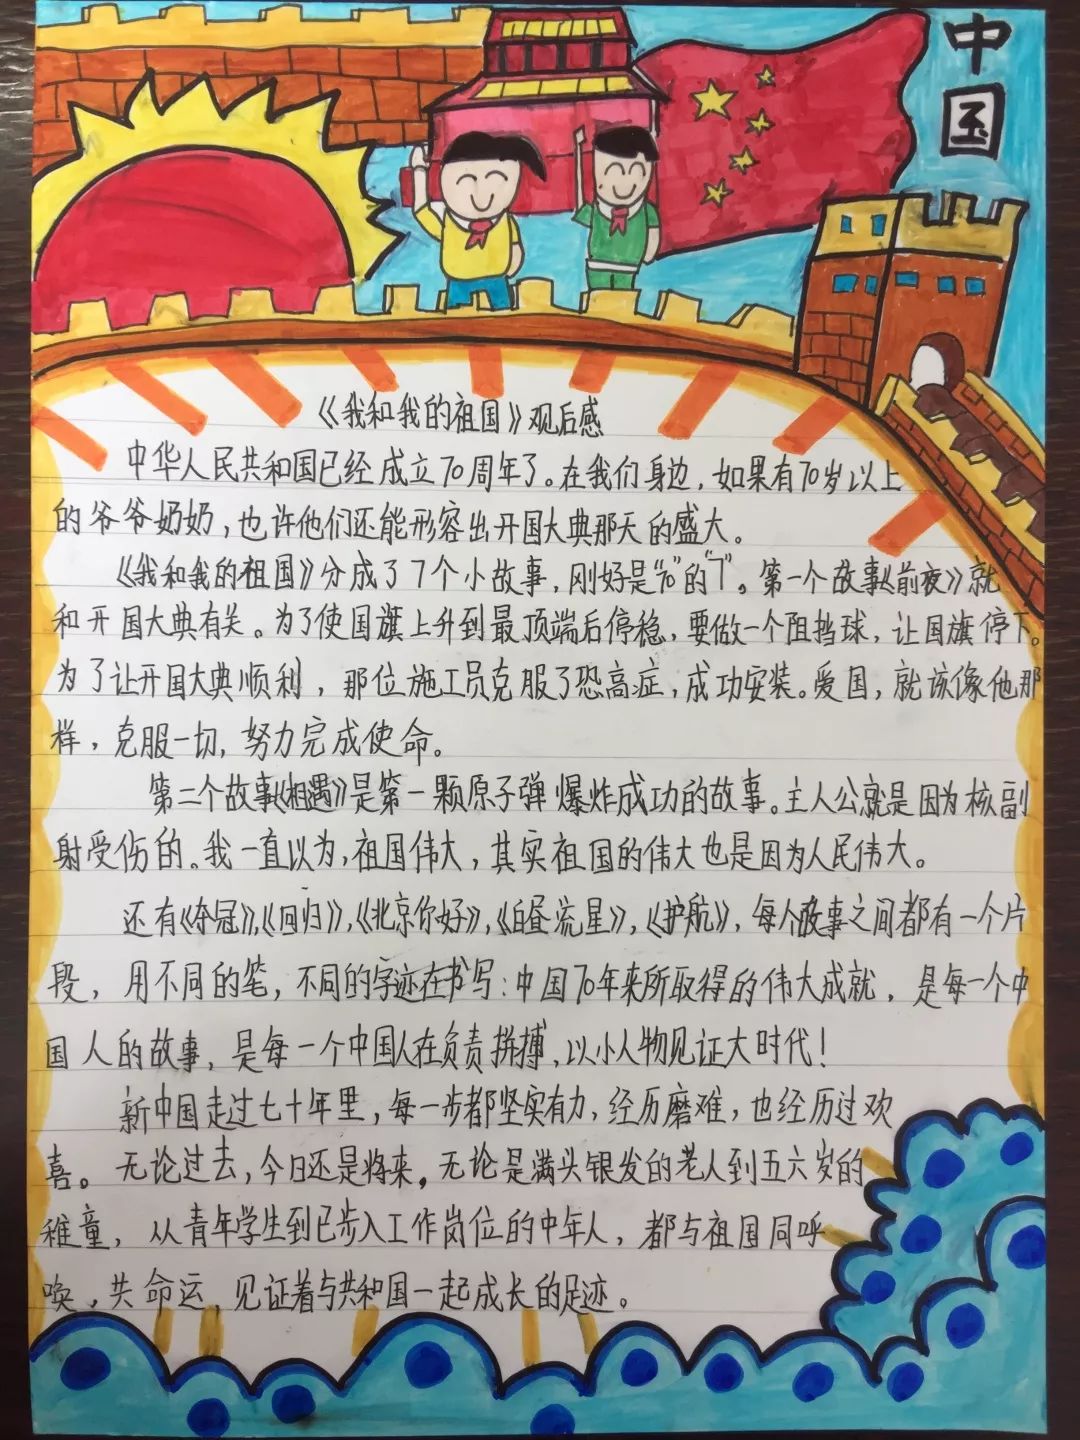 中
国
《我和我的祖国》观后感
中华人民共和国已经成立70周年了。在我们身边，如果有70岁以上
的爷爷奶奶，也许他们还能形容出开国大典那天的盛大。
《我和我的祖国》分成了7个小故事，刚好是“70”的“7”。第一个故事《前夜》就
和开国大典有关。为了使国旗上升到最顶端后停稳，要做一个阻挡球，让国旗停下。
为了让开国大典顺利，那位施工员克服了恐高症，成功安装。爱国，就该像他那
样，克服一切，努力完成使命。
第二个故事《相遇》是第一颗原子弹爆炸成功的故事。主人公就是因为核副
射受伤的。我一直以为，祖国伟大，其实祖国的伟大也是因为人民伟大。
还有《夺冠》，《回归》，《北京你好》，《白昼流星》，《护航》，每个故事之间都有一个片
段，用不同的笔，不同的字迹在书写：中国70年来所取得的伟大成就，是每一个中
国人的故事，是每一个中国人在负责拼搏，以小人物见证大时代！
新中国走过七十年里，每一步都坚实有力，经历磨难，也经历过欢
喜。无论过去，今日还是将来，无论是满头银发的老人到五六岁的
稚童，从青年学生到已步入工作岗位的中年人，都与祖国同呼
唤，共命运，见证着与共和国一起成长的足迹。